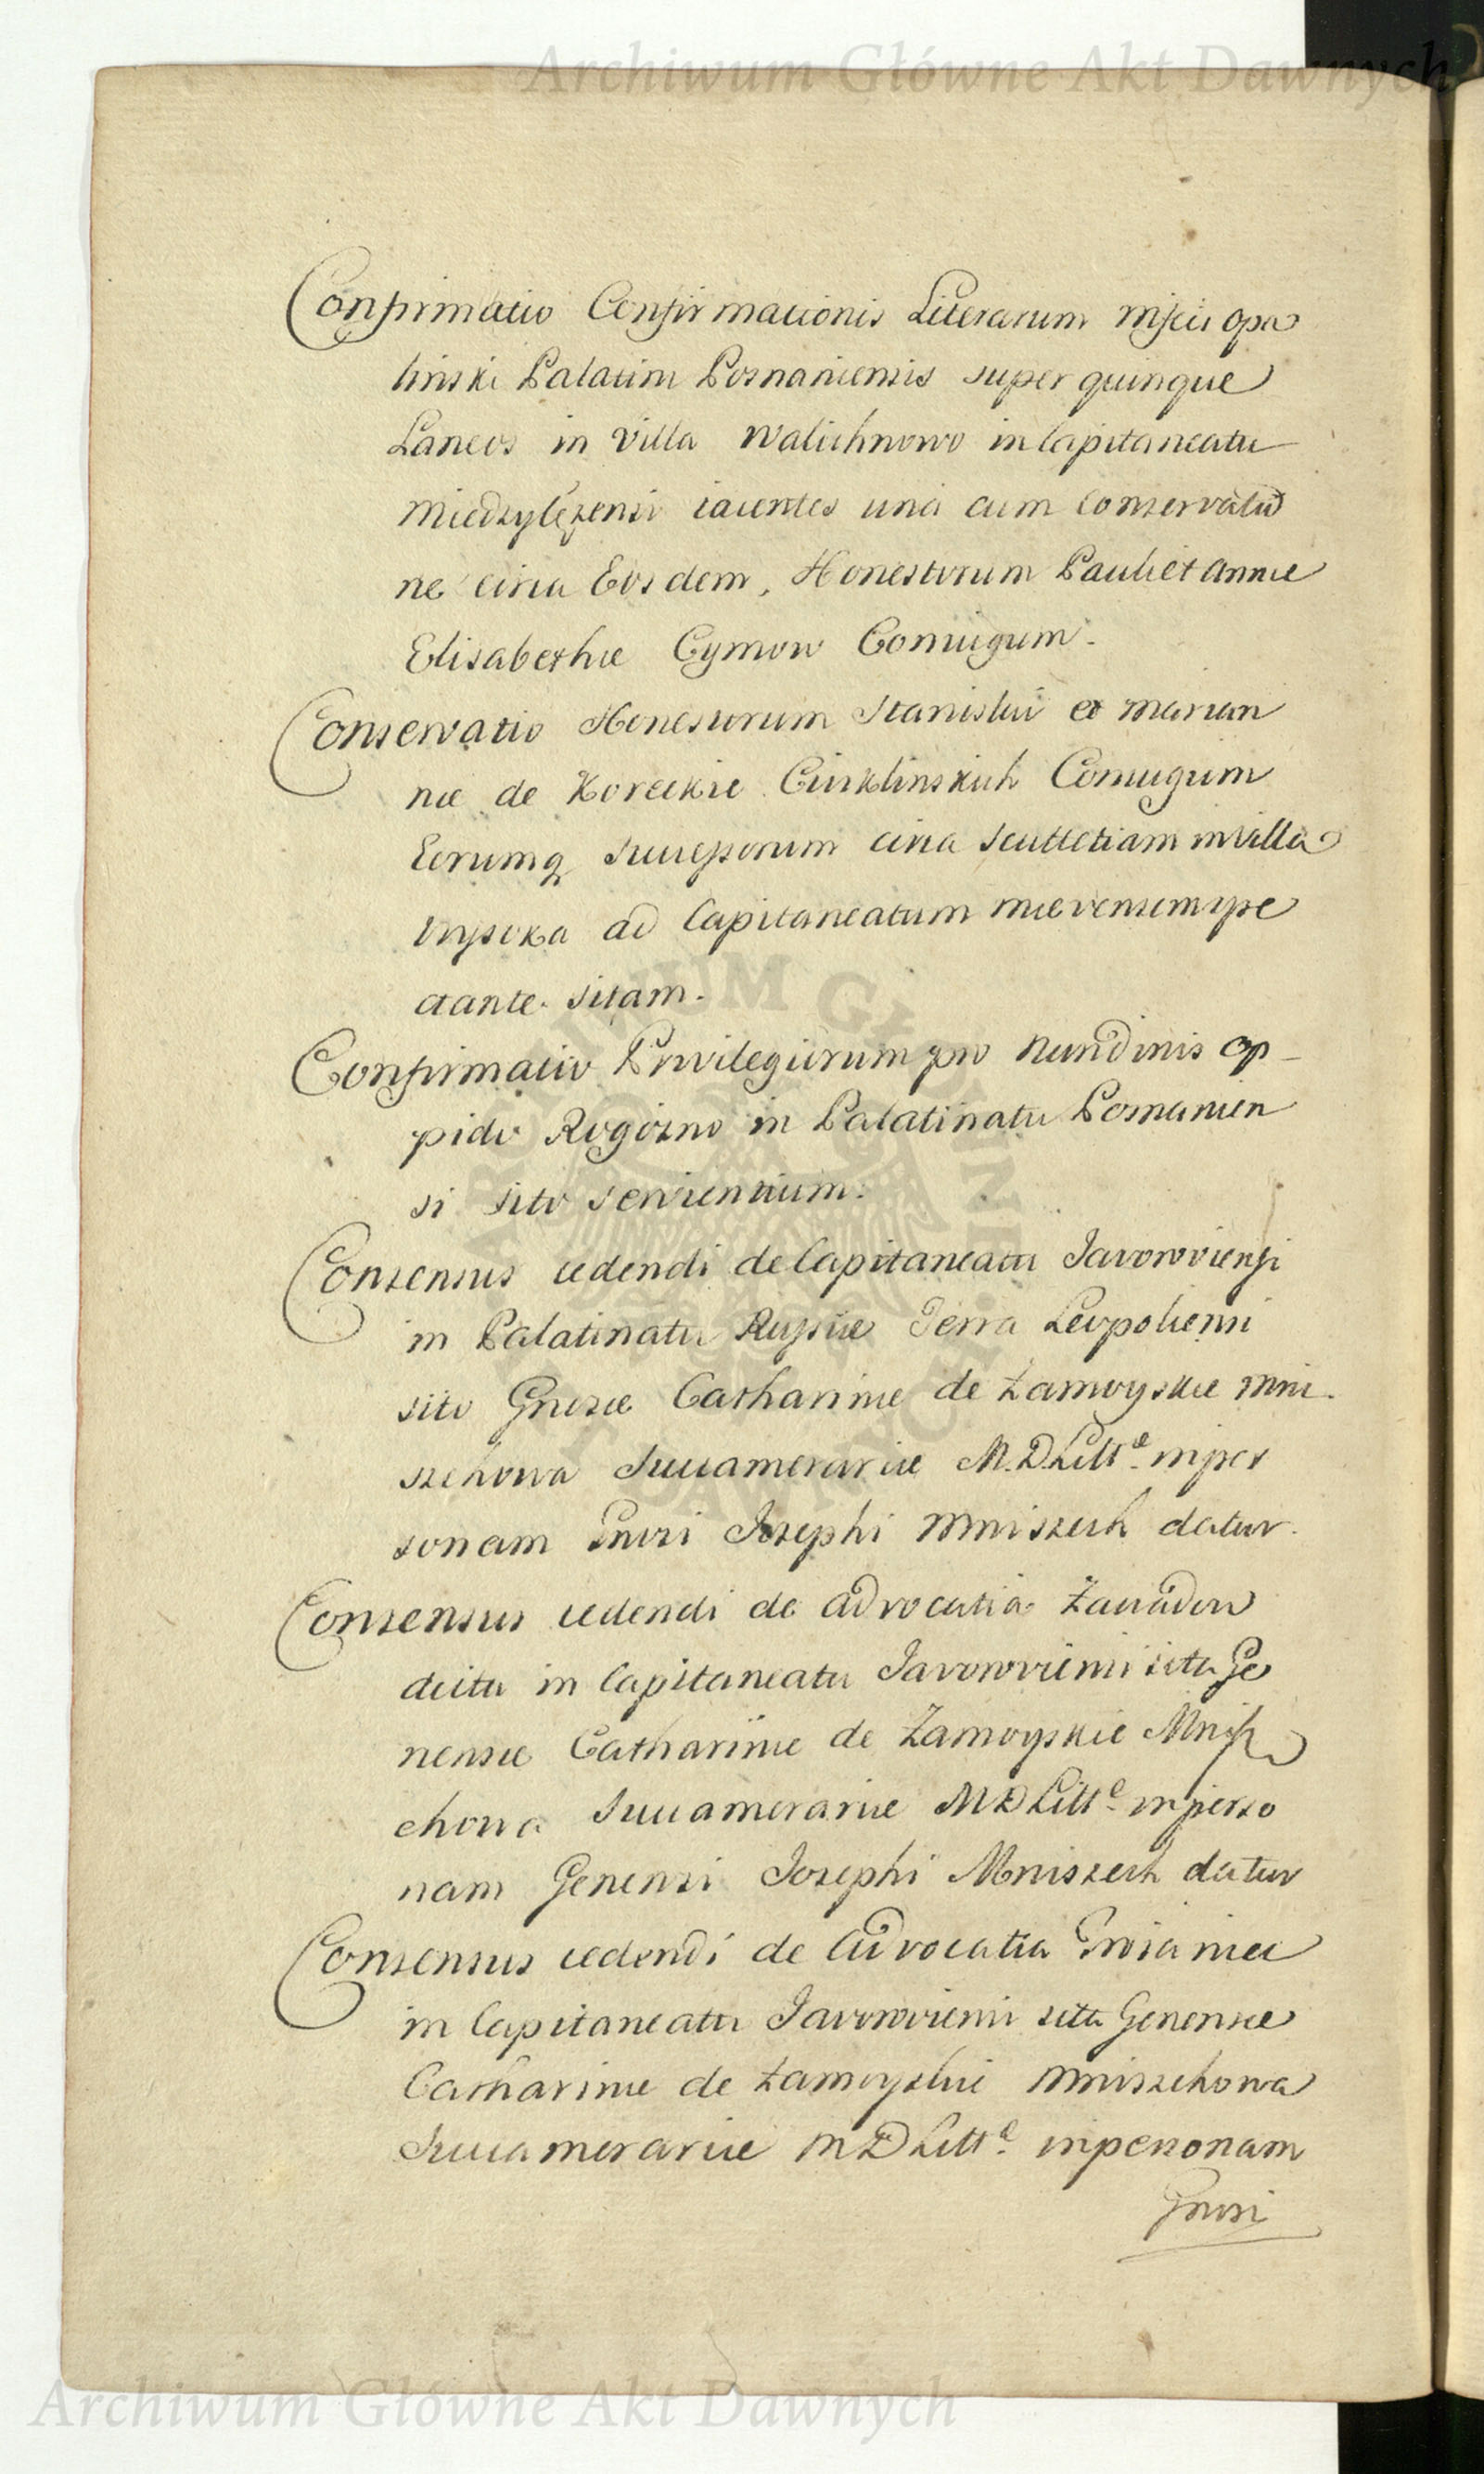 Archiwum Główne Akt Dawnych
Confirmatio Confirmationis Literarum Mfici Opa
linski Palatini Posnaniensis super quinque
Laneos in Villa Walichnowo in Capitaneatu
Miedzylęzensi iacentes una cum Conservatio
ne circa Eosdem, Honestorum Pauli et Annæ
Elisabethæ Cymow Coniugum.
Conservatio Honestorum Stanislai et Marian
næ de Koreckie Coniugum
Eorumq Successorum circa Scultetiam in Villa
Wysoka ad Capitaneatum Mevensem spe
ctante sitam.
Confirmatio Privilegiorum pro Nundinis Op
pido Rogozno in Palatinatu Posnanien
si sito servientium.
Consensus cedendi de Capitaneatu Javoroviensi
in Palatinatu Russiæ Terra Leopoliensi
sito Gnosæ Catharinæ de Zamoyskie Mni
szchowa Succamerariæ M.D.Litt.æ in per
sonam Gnosi Josephi Mniszech datur.
Consensus cedendi de Advocatia
dicta in Capitaneatu Javoroviensi sita Ge
nensæ Catharinæ de Zamoyskie Mnisz
chowa Succamerariæ M D Litt.æ in perso
nam Genensi Josephi Mniszech datur
Consensus cedendi de Advocatia
in Capitaneatu Javoroviensi sita Genensæ
Catharinæ de Zamoyskie Mniszchowa
Succamerariæ M D Litt.æ in personam
Gnosi
Archiwum Główne Akt Dawnych